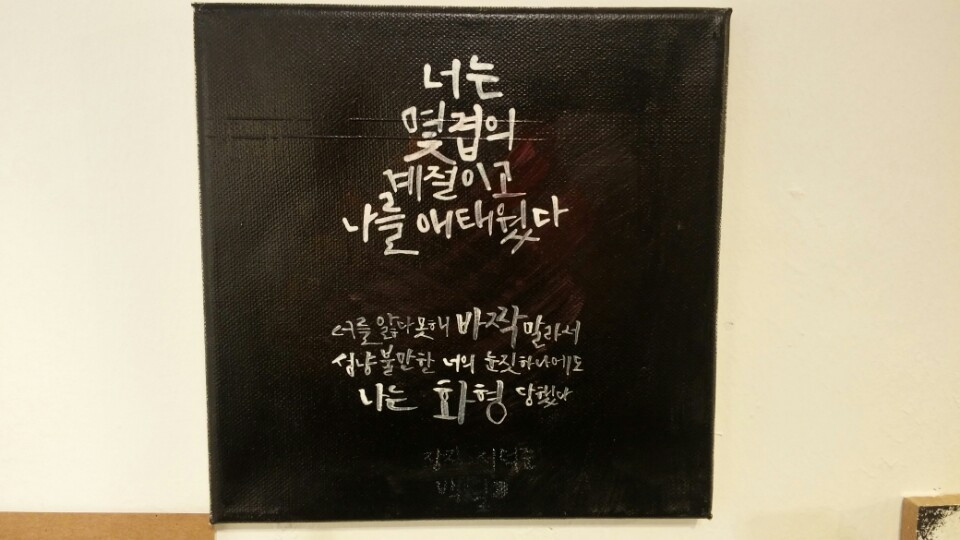 너는
몇겁의
계절이고
나를 애태웠다
너를 앓다못해 바짝 말라서
성냥불만한 너의 눈짓하나에도
나는 화형 당했다
장작 - 서덕준